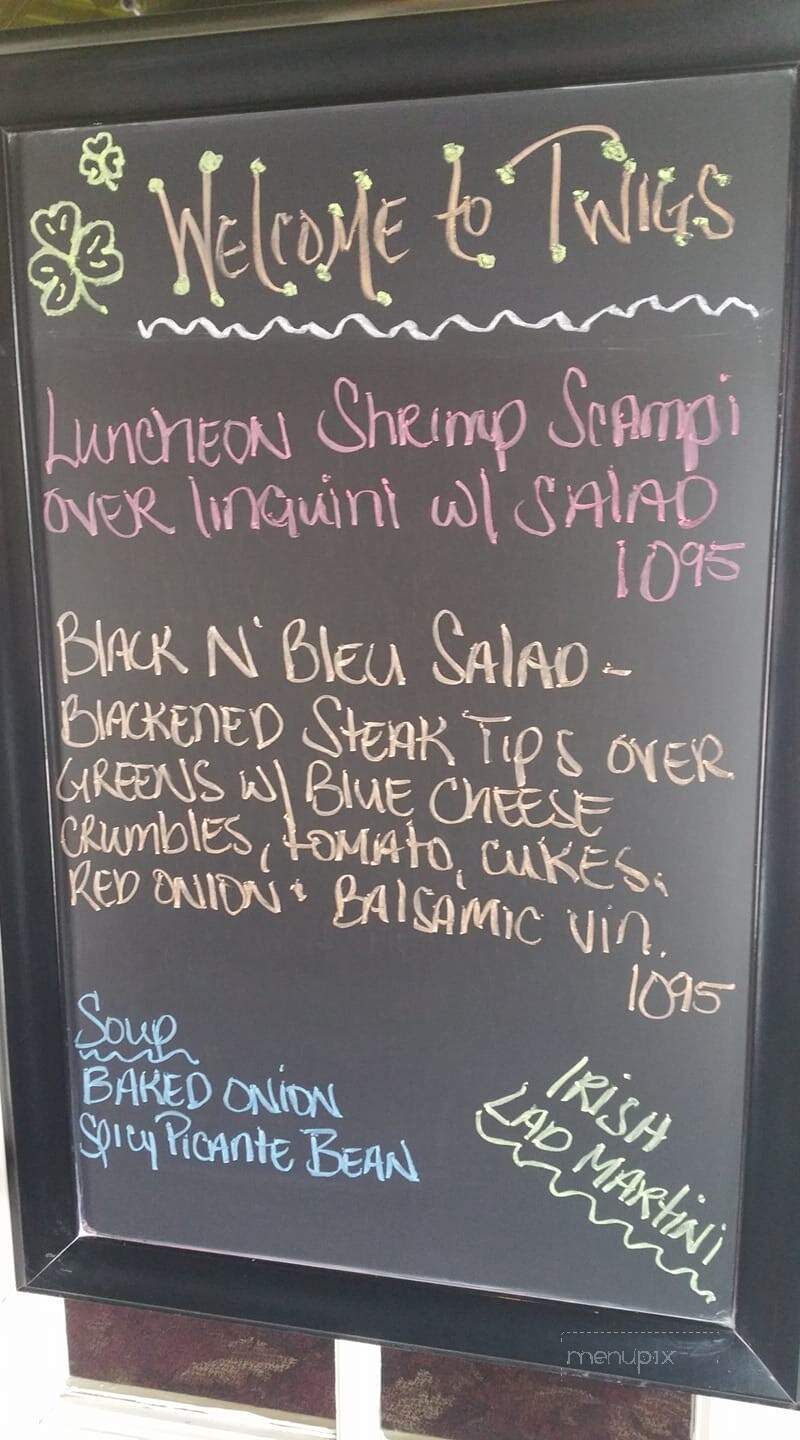 WELCOME to TWIGS
LUNCHEON SHRIMP SCAMPI
OVER linguini w/ SALAD
1095
BLACK N' BLEU SALAD -
BLACKENED STEAK TIPS OVER
GREENS w/ BLUE CHEESE
CRUMBLES, TOMATO, CUKES,
RED ONION & BALSAMIC VIN.
1095
Soup
BAKED ONION
SPICY PICANTE BEAN
IRISH
LAD MARTINI
menupix